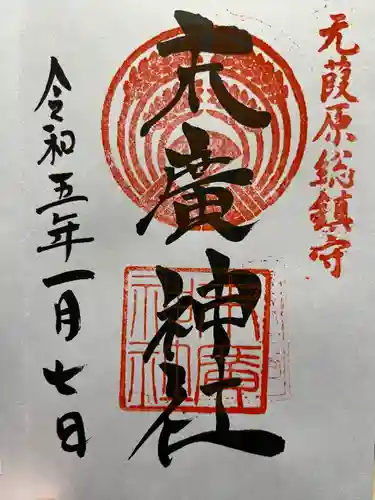 元葭原総鎮守
末廣神社
令和五年一月七日